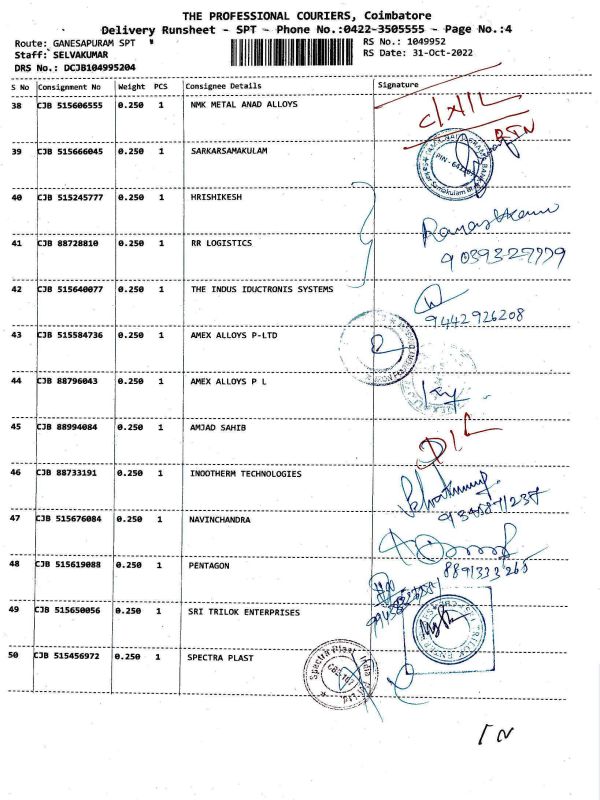 THE PROFESSIONAL COURIERS, Coimbatore
Delivery Runsheet - SPT - Phone No.:0422-3505555 - Page No.:4
Route: GANESAPURAM SPT
RS No.: 1049952
Staff: SELVAKUMAR
RS Date: 31-Oct-2022
DRS No.: DCJB104995204
S No Consignment No Weight PCS Consignee Details Signature
38 CJB 515606555 0.250 1 NMK METAL ANAD ALLOYS
39 CJB 515666045 0.250 1 SARKARSAMAKULAM
40 CJB 515245777 0.250 1 HRISHIKESH
41 CJB 88728810 0.250 1 RR LOGISTICS
42 CJB 515640077 0.250 1 THE INDUS IDUCTRONIS SYSTEMS
9442926208
43 CJB 515584736 0.250 1 AMEX ALLOYS P-LTD
44 CJB 88796043 0.250 1 AMEX ALLOYS P L
45 CJB 88994084 0.250 1 AMJAD SAHIB
46 CJB 88733191 0.250 1 INOOTHERM TECHNOLOGIES
47 CJB 515676084 0.250 1 NAVINCHANDRA
48 CJB 515619088 0.250 1 PENTAGON
8891333265
49 CJB 515650056 0.250 1 SRI TRILOK ENTERPRISES
50 CJB 515456972 0.250 1 SPECTRA PLAST
Spectra Plast India